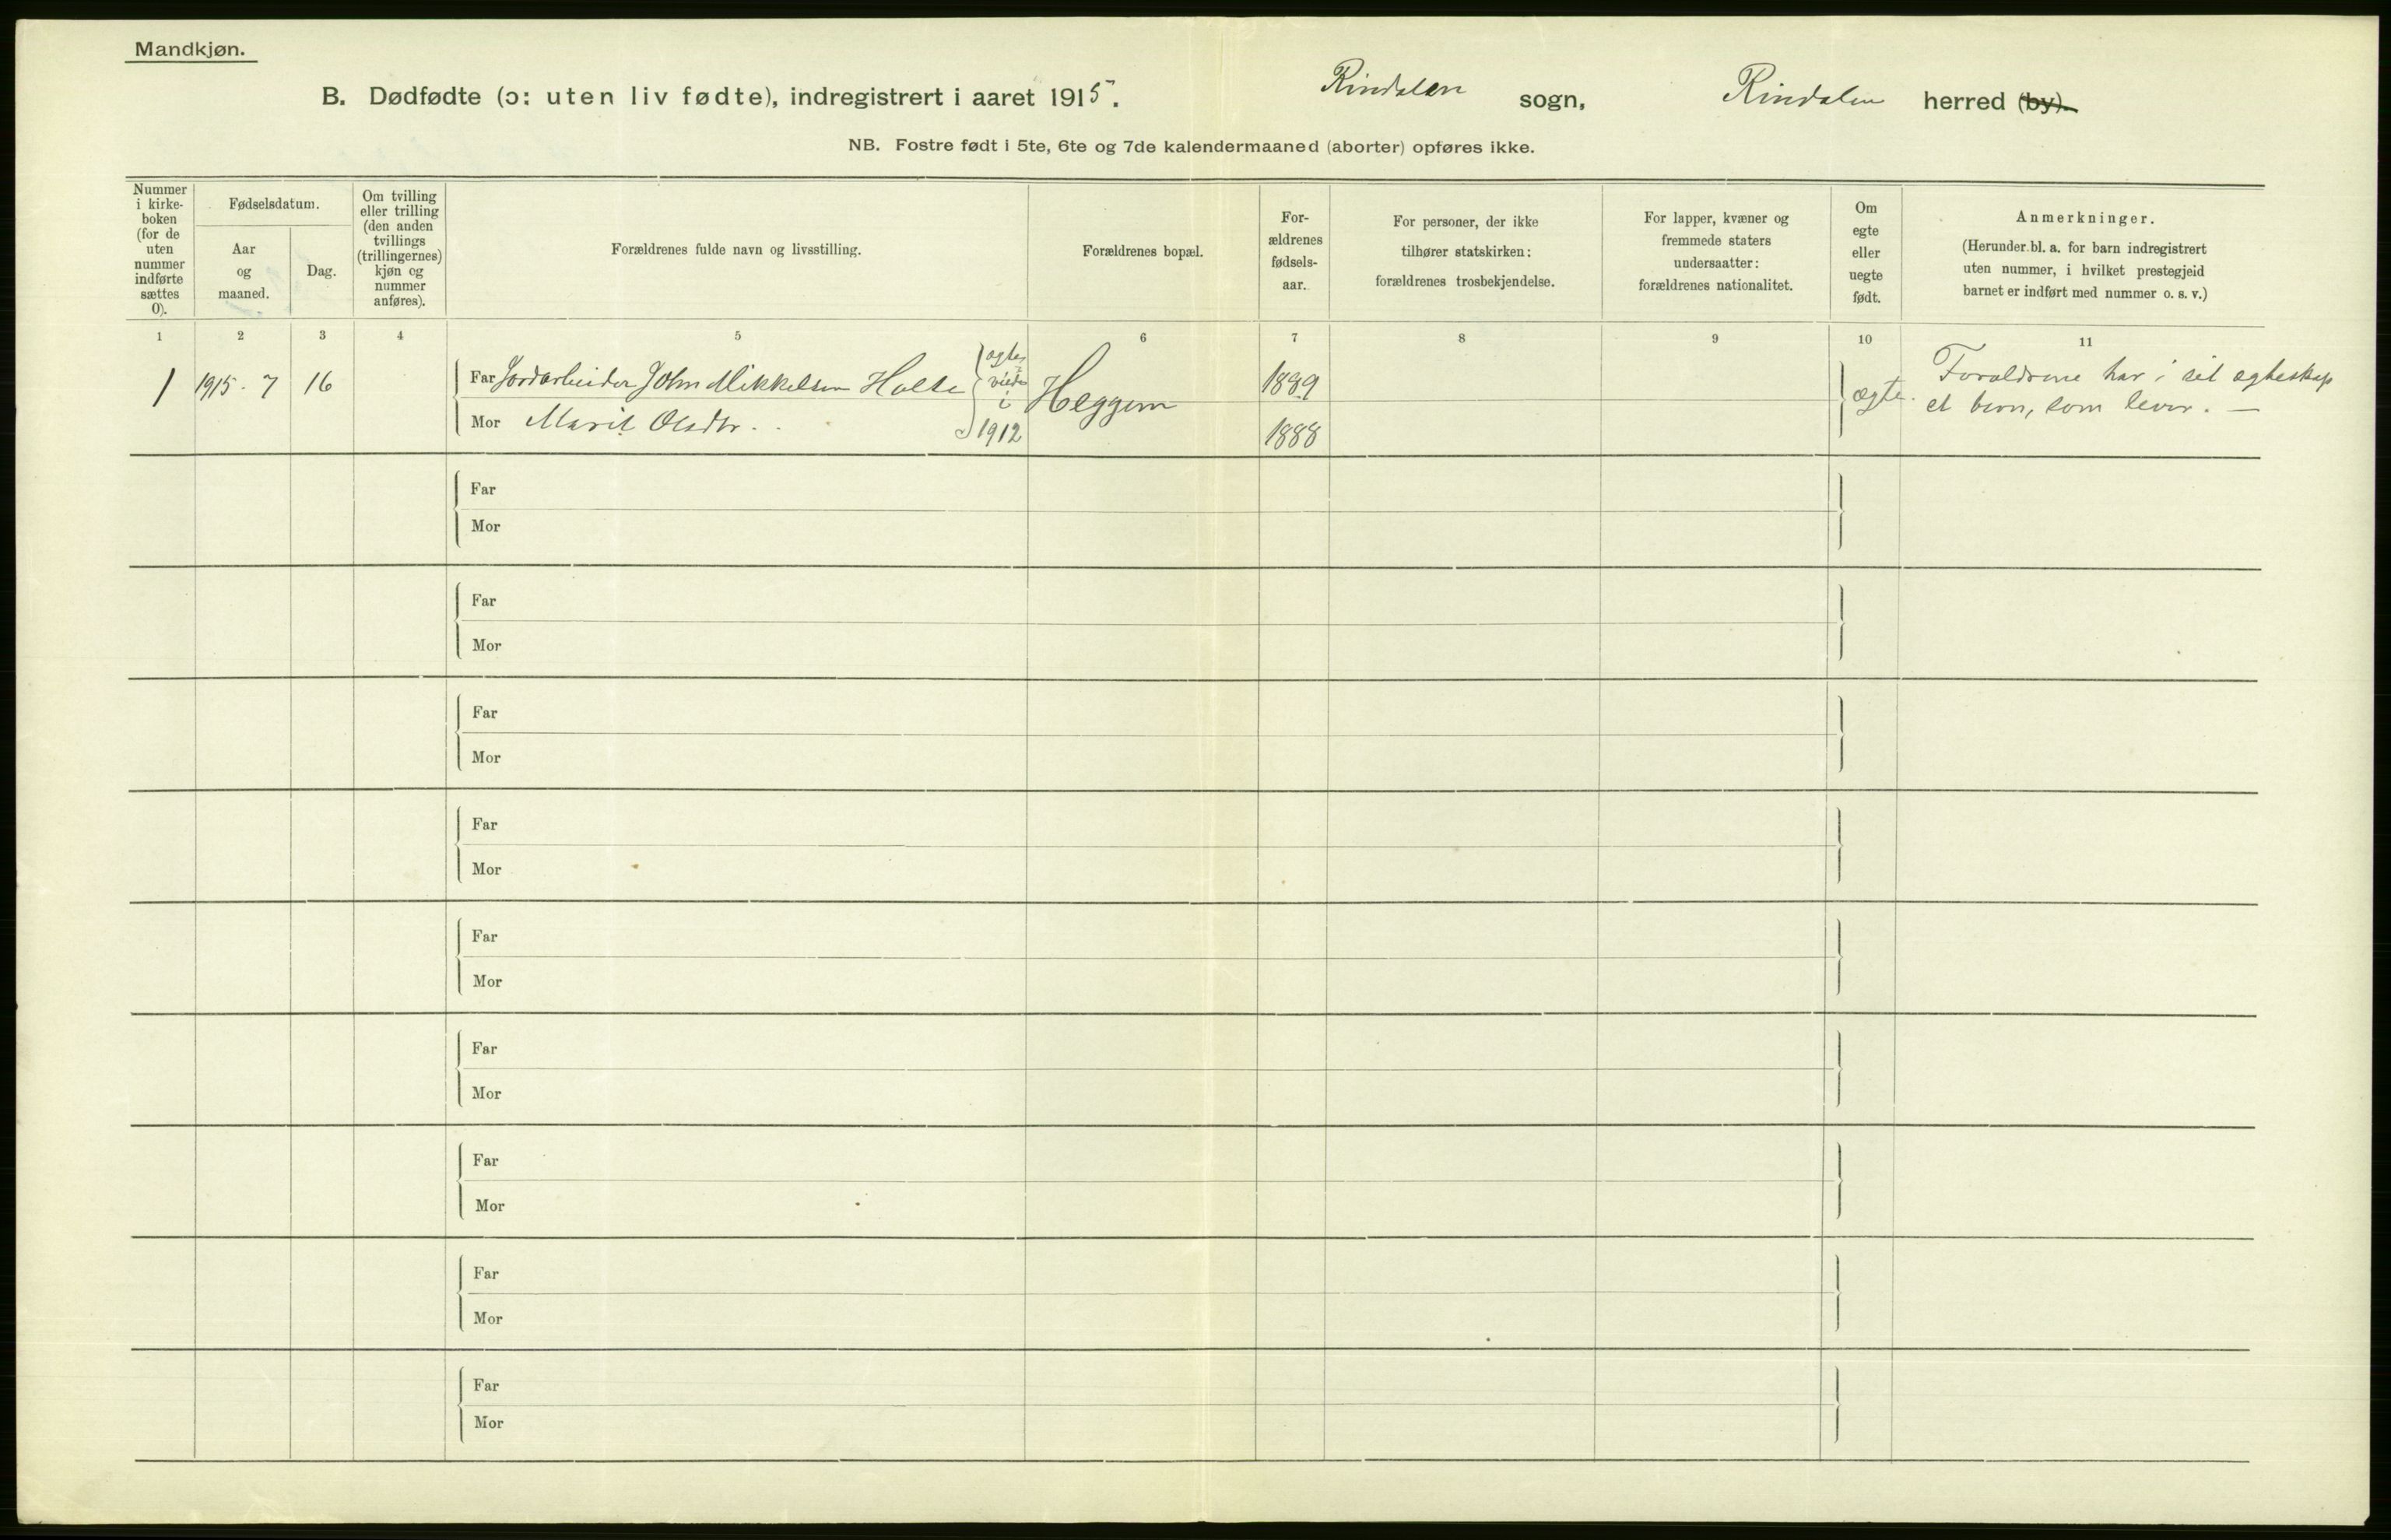 Mandkjøn.
B. Dødfødte (ɔ: uten liv fødte), indregistrert i aaret 1915. Rindalen sogn, Rindalen herred (by).
NB. Fostre født i 5te, 6te og 7de kalendermaaned (aborter) opføres ikke.
Nummer
i kirke-
boken
(for de
uten
nummer
indførte
sættes
0).
Fødselsdatum.
Aar
og
maaned.
Dag.
Om tvilling
eller trilling
(den anden
tvillings
(trillingernes)
kjøn og
nummer
anføres).
Forældrenes fulde navn og livsstilling.
Forældrenes bopæl.
For-
ældrenes
fødsels-
aar.
For personer, der ikke
tilhører statskirken:
forældrenes trosbekjendelse.
For lapper, kvæner og
fremmede staters
undersaatter:
forældrenes nationalitet.
Om
egte
eller
uegte
født.
Anmerkninger.
(Herunder bl. a. for barn indregistrert
uten nummer, i hvilket prestegjeid
barnet er indført med nummer o. s. v.)
1 2 3 4 5 6 7 8 9 10 11
1 1915. 7 16
Far Jordarbeider John Mikkelsen Holte
Mor Marit Olsdtr.
egte
viede
i
1912
Heggem
1889
1888
ægte.
Forældrene har i sit ægteskap
et barn, som lever. —
Far
Mor
Far
Mor
Far
Mor
Far
Mor
Far
Mor
Far
Mor
Far
Mor
Far
Mor
Far
Mor